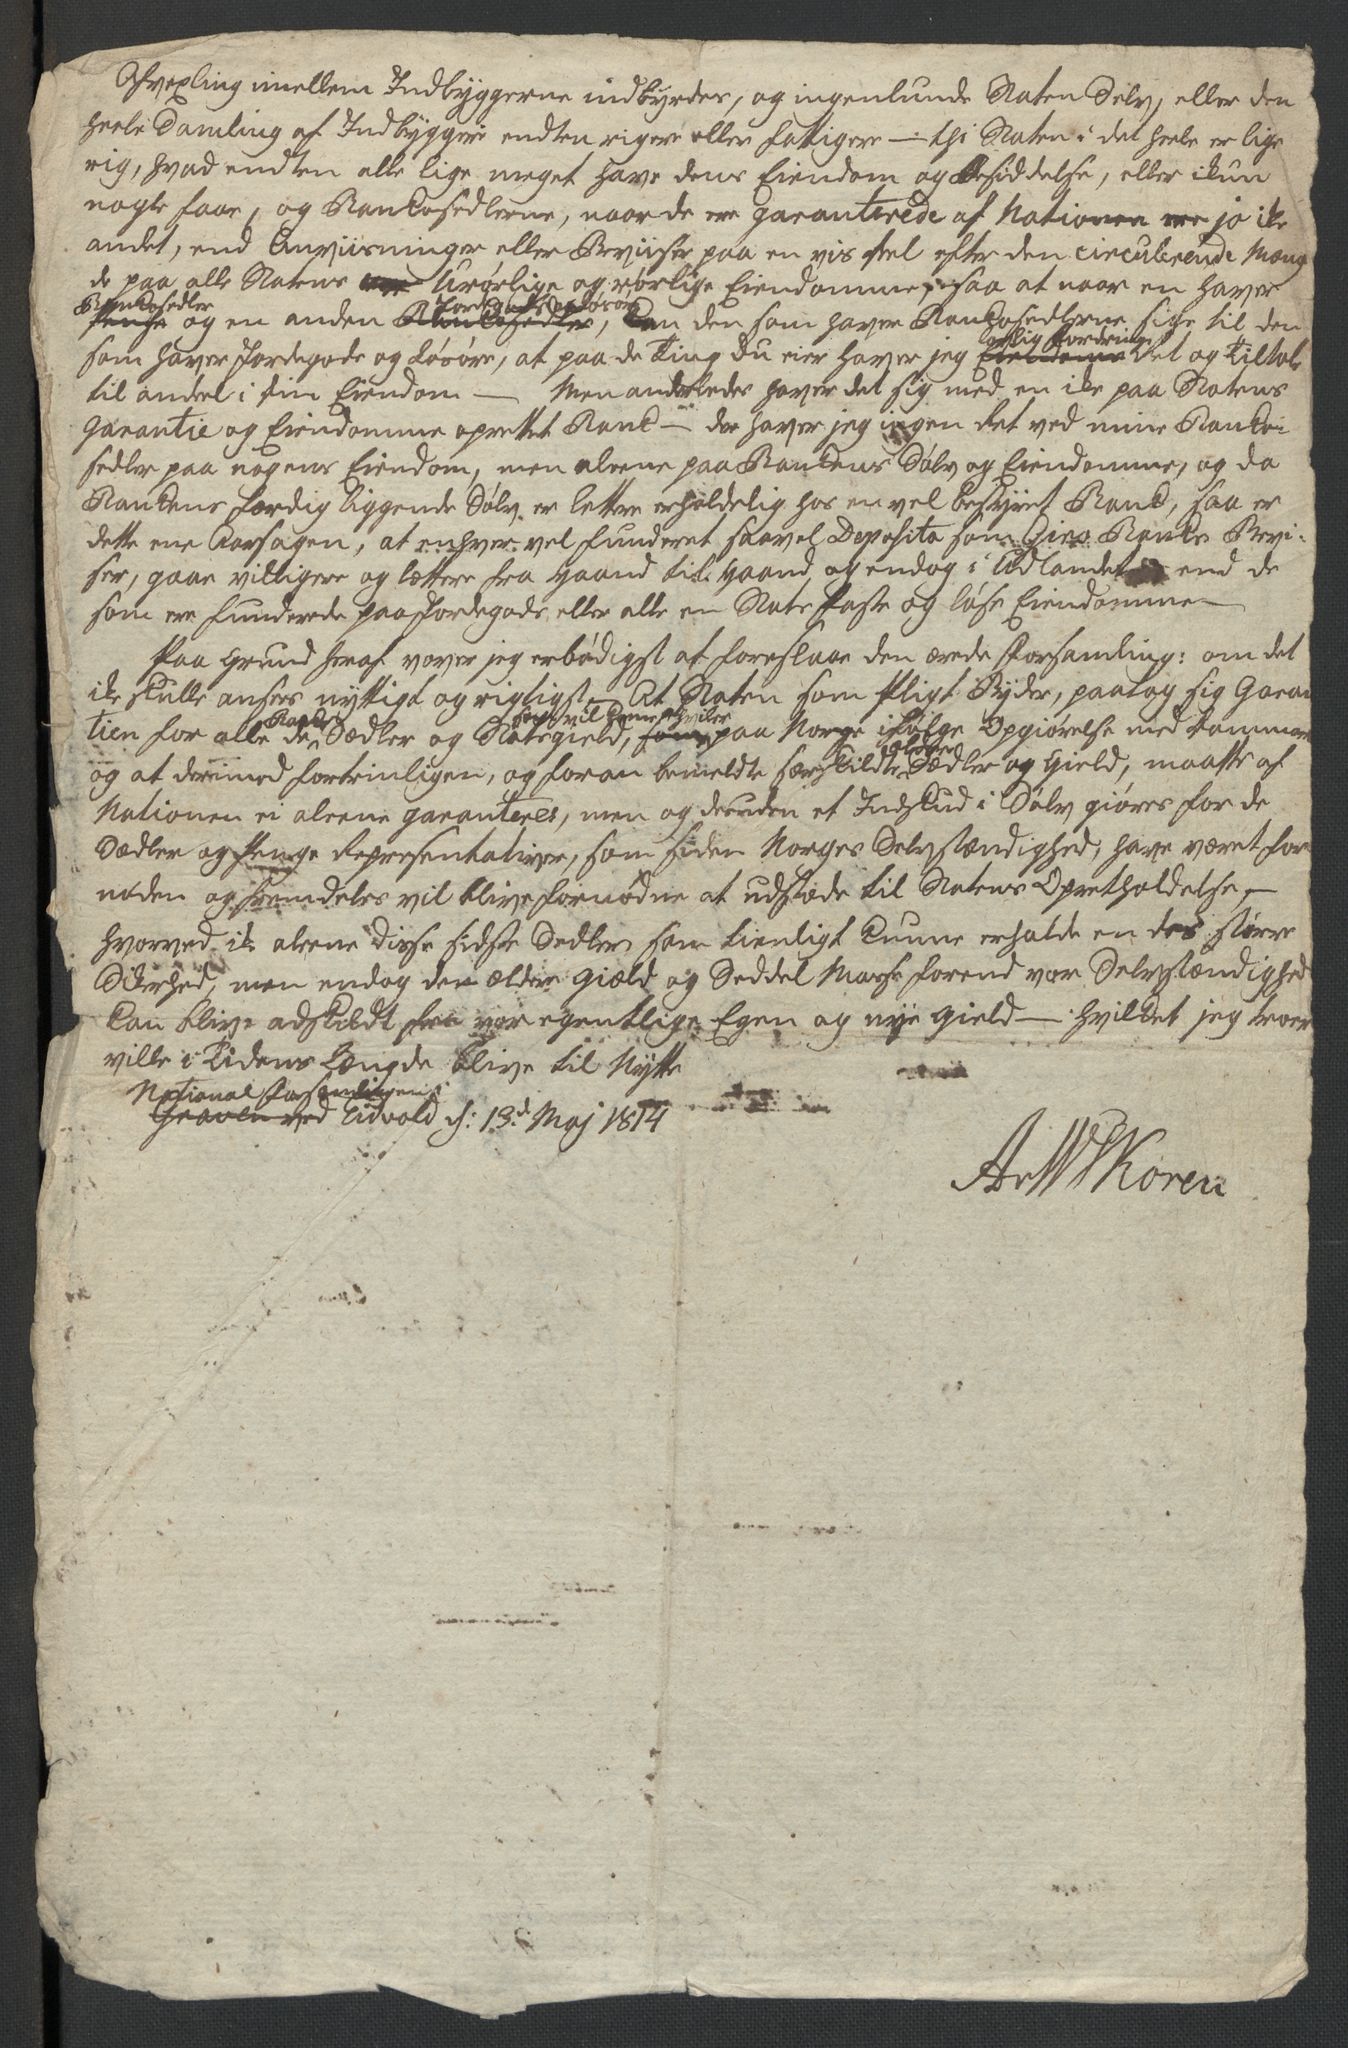 Afvexling imellem Indbyggerne indbyrdes, og ingenlunde Staten Selv, eller den
heele Samling af Indbyggere endten rigere eller fattigere — thi Staten i det heele er lige
rig, hvad endten alle lige meget have dens Eiendom og Besiddelse, eller ikun
nogle faae, og Bankosedlerne, naar de ere garanterede af Nationen ere jo ike
andet, end Anviisninger eller Beviiser paa en vis Deel efter den circulerende Mæng
de paa alle Statens Urørlige og rørlige Eiendomme, saa at naar en haver
Bankosedler
Penge og en anden Jordegods og Løsøre Bankosedler, kan den som haver Bankosedlerne sige til den
som haver Jordegods og Løsøre, at paa de Ting du eier haver jeg vislig Fordring Eiendoms Ret og Tiltale
til andeel i din Eiendom — Men anderledes haver det sig med en ike paa Statens
Garantie og Eiendomme oprettet Bank — der haver jeg ingen Ret ved mine Banko-
sedler paa nogens Eiendom, men aleene paa Bankens Sølv og Eiendomme, og da
Bankens færdig liggende Sølv er lettere erholdelig hos en vel bestyret Bank, saa er
dette ene Aarsagen, at enhver vel funderet saavel Deposito som Giro Banks Bevi-
ser, gaae villigere og lættere fra Haand til Haand og endog i Udlandet end de
som ere funderede paa Jordegods eller alle en Stats faste og løse Eiendomme —
Paa Grund heraf vover jeg erbødigst at foreslaae den ærede Forsamling: om det
ike skulle ansees nyttigt og rigtigst — At Staten som Pligt Byder, paatog sig Garan
tien for alle de Banko Sedler og Statsgield, som vil kunne hviler paa Norge ifølge Opgiørelse med Danmark
og at derimod fortrinligen, og foran bemeldte særskildte ældre Sædler og Gield, maatte af
Nationen ei aleene garanteres, men og desuden et Indskud i Sølv giøres for de
Sædler og Penge Representativer, som siden Norges Selvstændighed, have været for
nøden og fremdeles vil blive fornødne at udstæde til Statens Opretholdelse, —
hvorved ik aleene disse sidste Sedler som tienligt kunne erholde en des større
Sikerhed, men endog den ældre Giæld og Seddel Masse forend vor Selvstændighed
kan blive adskildt fra vor egentlige Egen og nye Gield — hvilket jeg troer
ville i Tidens Længde blive til Nytte
National Forsamlingen
Graven ved Eidvold d: 13d Maj 1814
ArWKoren